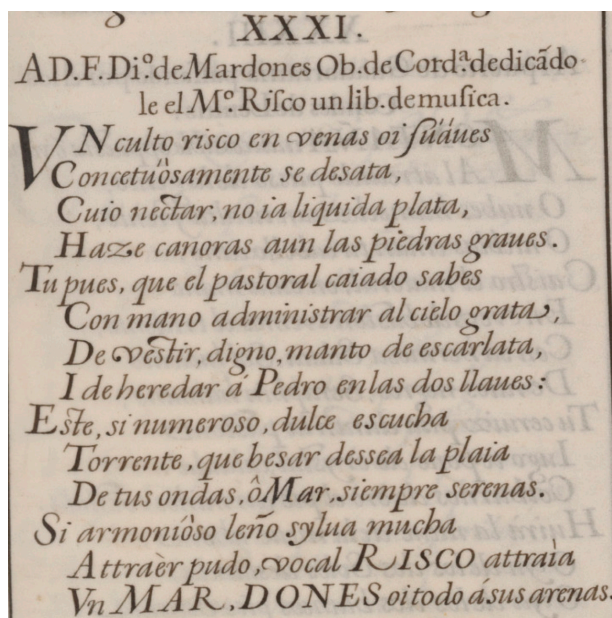 XXXI.
A D. F. Di.º de Mardones Ob. de Cord.ª dedicãdo
le el M.º Risco un lib. de musica.
VN culto risco en venas oi süàues
Concetüòsamente se desata,
Cuio nectar, no ia liquida plata,
Haze canoras aun las piedras graues.
Tu pues, que el pastoral caiado sabes
Con mano administrar al cielo grata,
De vestir, digno, manto de escarlata,
I de heredar á Pedro en las dos llaues:
Este, si numeroso, dulce escucha
Torrente, que besar dessea la plaia
De tus ondas, ô Mar, siempre serenas.
Si armoniòso leño sylua mucha
Attraèr pudo, vocal RISCO attraìa
Vn MAR, DONES oi todo á sus arenas.